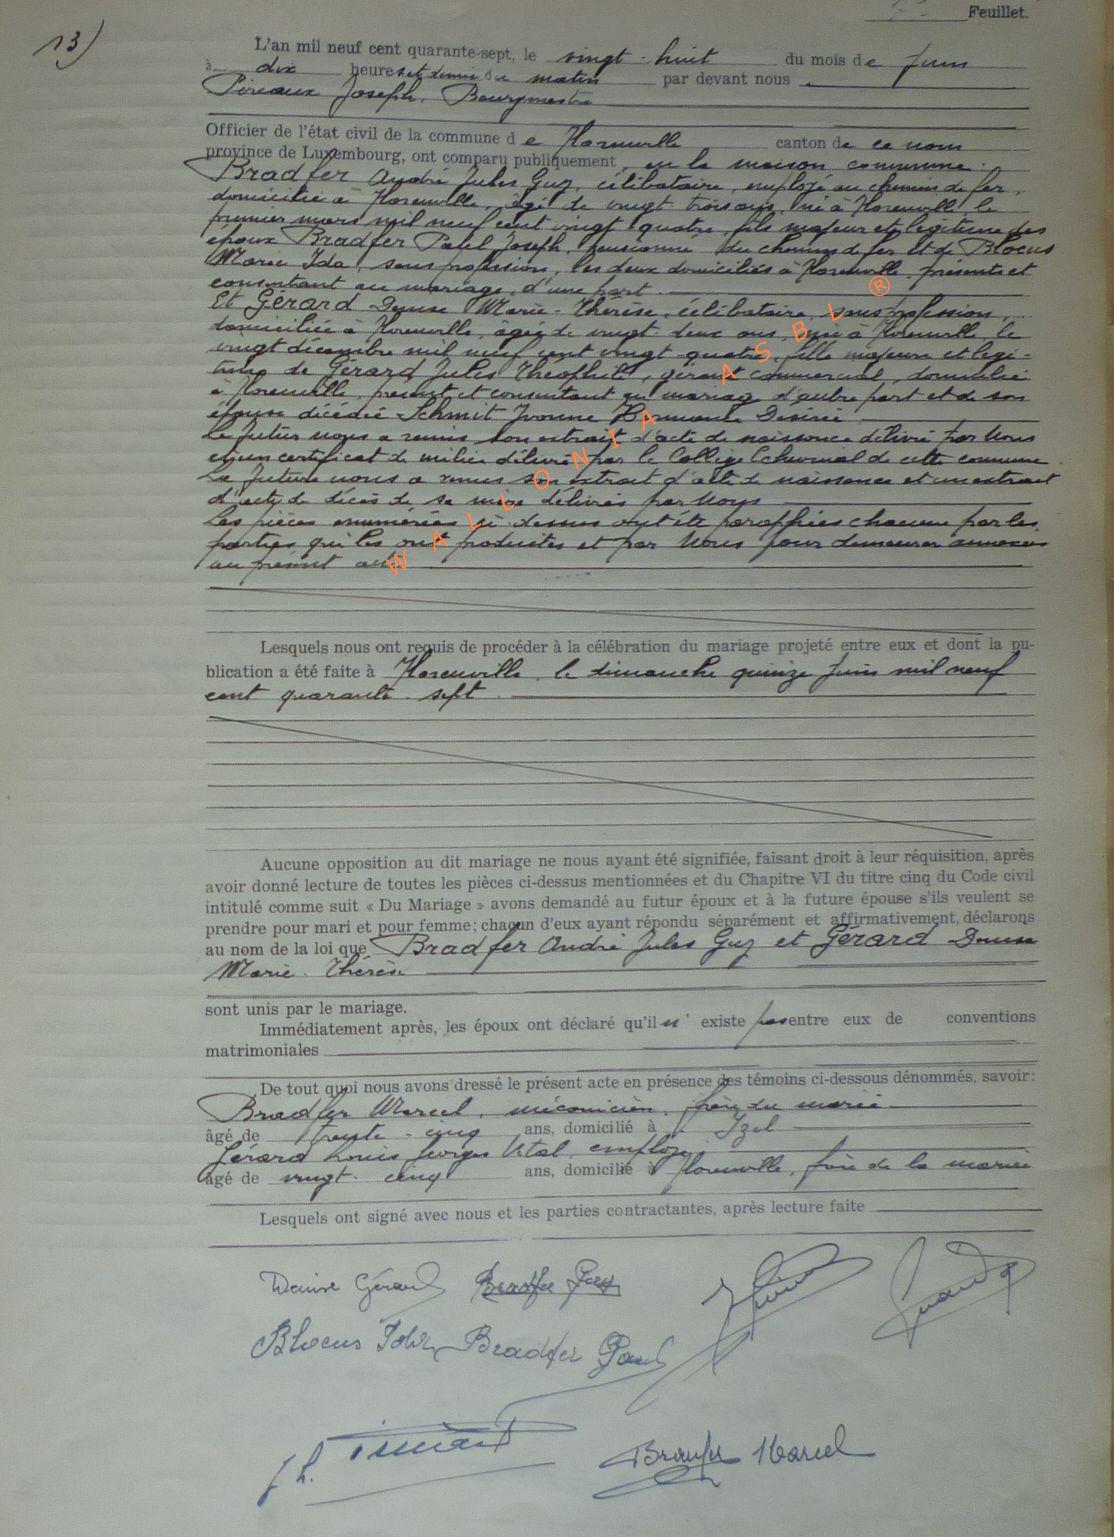 13)
Feuillet.
L'an mil neuf cent quarante-sept, le vingt-huit du mois de Juin
à dix heures et demie du matin par devant nous
Joseph, Bourgmestre
Officier de l'état civil de la commune de Florenville canton de ce nom
province de Luxembourg, ont comparu publiquement en la maison commune.
Bradfer André Jules Guy, célibataire, employé au chemin de fer,
domicilié à Florenville, âgé de vingt-trois ans, né à Florenville le
premier mars mil neuf cent vingt quatre, fils majeur et légitime des
époux Bradfer Paul Joseph, pensionné du chemin de fer et de Blocus
Marie Ida, sans profession, les deux domiciliés à Florenville, présents et
consentant au mariage, d'une part ®
Et Gérard Denise Marie-Thérèse, célibataire, sans profession,
domiciliée à Florenville, âgée de vingt-deux ans, née à Florenville le
vingt décembre mil neuf cent vingt-quatre, fille majeure et légi-
time de Gérard Jules Théophile, gérant commercial, domicilié
à Florenville, présent et consentant au mariage d'autre part et de son
épouse décédée Schmit Yvonne Hermance Désirée
Le futur nous a remis son extrait d'acte de naissance délivré par Nous
et un certificat de milice délivré par le Collège Echevinal de cette commune
La future nous a remis son extrait d'acte de naissance et un extrait
d'acte de décès de sa mère délivrés par Nous
Les pièces énumérées ci-dessus ont été paraphées chacune par les
parties qui les ont produites et par Nous pour demeurer annexées
au présent acte
WALLONIA ASBL
Lesquels nous ont requis de procéder à la célébration du mariage projeté entre eux et dont la pu-
blication a été faite à Florenville, le dimanche quinze Juin mil neuf
cent quarante-sept.
Aucune opposition au dit mariage ne nous ayant été signifiée, faisant droit à leur réquisition, après
avoir donné lecture de toutes les pièces ci-dessus mentionnées et du Chapitre VI du titre cinq du Code civil
intitulé comme suit « Du Mariage » avons demandé au futur époux et à la future épouse s'ils veulent se
prendre pour mari et pour femme; chacun d'eux ayant répondu séparément et affirmativement, déclarons
au nom de la loi que Bradfer André Jules Guy et Gérard Denise
Marie-Thérèse
sont unis par le mariage.
Immédiatement après, les époux ont déclaré qu'il n' existe pas entre eux de conventions
matrimoniales
De tout quoi nous avons dressé le présent acte en présence des témoins ci-dessous dénommés, savoir:
Bradfer Marcel, mécanicien, frère du marié
âgé de trente-cinq ans, domicilié à Izel
Gérard Louis Georges Vital, employé
âgé de vingt-cinq ans, domicilié à Florenville, frère de la mariée
Lesquels ont signé avec nous et les parties contractantes, après lecture faite
Denise Gérard Bradfer Guy
Blocus Ida Bradfer Paul
Bradfer Marcel